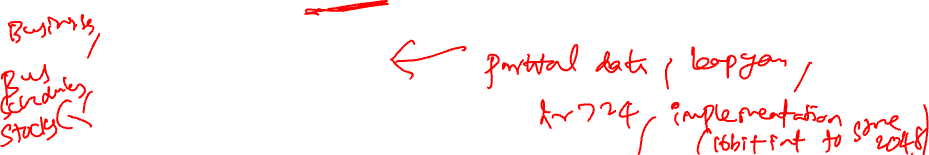 Business,
Bus
Schedules,
Stocks
← partial date, leap year,
hr > 24, implementation
(16 bit int to store
2048)